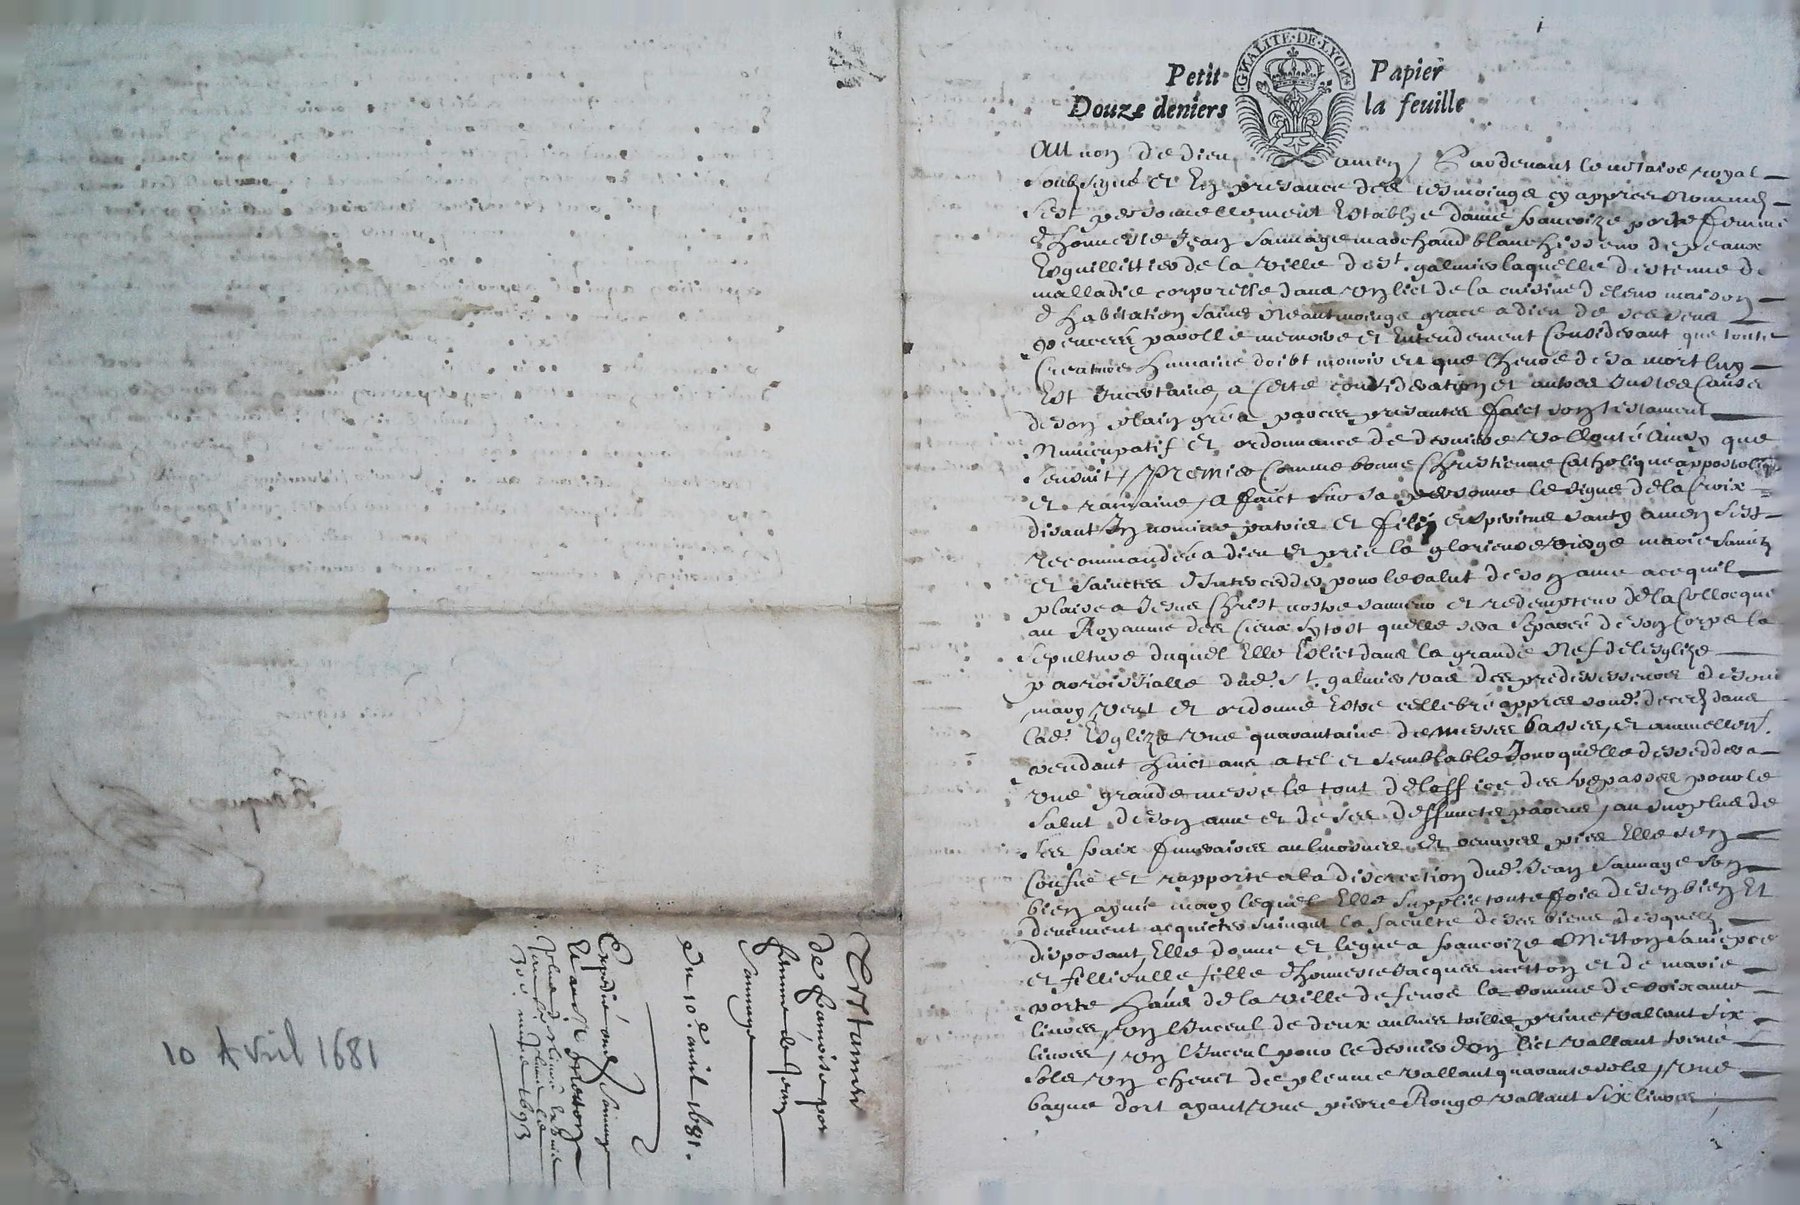 GNALITE·DE·LYON
Petit Papier
Douze deniers la feuille
Au nom de Dieu, amen / Pardevant le notaire royal
soubsigné et en presance des tesmoings cy appres nommés
s'est personnellement establye dame françoize porte femme
d'honneste Jean Sauvage marchand blanchisseur de peaux
Esguillittier de la ville de St. galmier laquelle destenue de
malladie corporelle dans un lict de la cuisine de leur maison
d'habitation saine neantmoings grace a dieu de ses sens
parolle memoire et Entendement Considerant que toute
Creature humaine doibt mourir et que l'heure de sa mort luy
Est Incertaine, a Cette consideration et autres Justes Causes
de son plain gré a par ces presantes faict son testament
Nuncupatif et ordonnance de derniere vollonté Ainsy que
s'ensuit / Premier Comme bonne Chrestienne Catholique appostolique
et romaine, a faict sur sa personne le signe de la Croix
disant In nomine patris et filij et spiritus santy amen s'est
recommandée a dieu et prie la glorieuse vierge marie saintz
et sainctes d'Interceder pour le salut de son ame a ce quil
plaise a Jesus Christ nostre sauveur et redempteur de la Collocque
au Royaume des Cieux sytost quelle sera separée de son Corps la
sepulture duquel Elle Eslict dans la grande Nef de lesglize
paroissialle dud. St. galmier vas des predecesseurs de son
mary, veut et ordonne Estre cellebré appres sond. deces dans
lad. Esglize une quarantaine de messes basses, et annuellem.
pendant huict ans a tel et semblable Jour quelle deceddera
une grande messe le tout de loffice des trepassés pour le
salut de son ame et de ses deffuncts parens, au surplus de
ses fraix funeraires aulmosnes et oeuvres pies Elle s'en
Confie et rapporte a la discrection dud. Jean Sauvage son
bien aymé mary lequel Elle supplie toutefois de s'en bien Et
deuement acquicter suivant la faculté de ses biens desquels
disposant, Elle donne et legue a françoize Metton sa niepce
et fillieulle fille d'honneste Jacques metton et de marie
porte hans de la ville de feurs la somme de soixante
livres, un linceul de deux aulnes toille prime vallant six
livres, un linceul pour le dernier don lict vallant trente
sols un chevet de plume vallant quarante sols, une
bague d'ort ayant une pierre Rouge vallant six livres
Testament
de françoise por
femme de Jean
Sauvage
du 10e. avril 1681.
Expedié aud. Sauvage
Et aud. metton
1693
10 Avril 1681